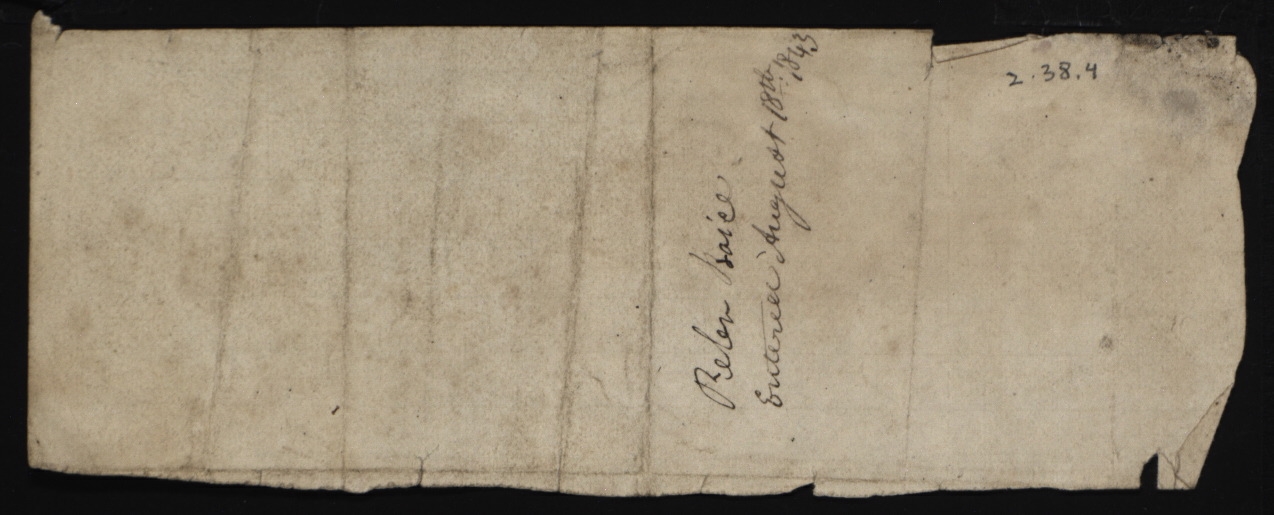 2.38.4
Reben Boice
Entered August 18th 1843